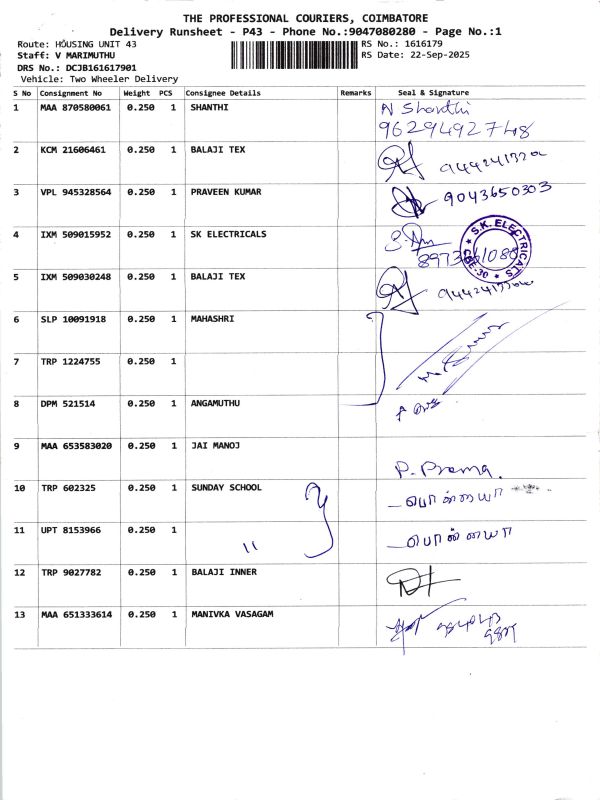 THE PROFESSIONAL COURIERS, COIMBATORE
Delivery Runsheet - P43 - Phone No.:9047080280 - Page No.:1
Route: HOUSING UNIT 43 RS No.: 1616179
Staff: V MARIMUTHU RS Date: 22-Sep-2025
DRS No.: DCJB161617901
Vehicle: Two Wheeler Delivery
S No Consignment No Weight PCS Consignee Details Remarks Seal & Signature
1 MAA 870580061 0.250 1 SHANTHI N Shanthi
9629492748
2 KCM 21606461 0.250 1 BALAJI TEX
3 VPL 945328564 0.250 1 PRAVEEN KUMAR 9043650303
4 IXM 509015952 0.250 1 SK ELECTRICALS
S.K. ELECTRICALS
CBE-30
5 IXM 509030248 0.250 1 BALAJI TEX
6 SLP 10091918 0.250 1 MAHASHRI
7 TRP 1224755 0.250 1
8 DPM 521514 0.250 1 ANGAMUTHU
9 MAA 653583020 0.250 1 JAI MANOJ P. Prema.
10 TRP 602325 0.250 1 SUNDAY SCHOOL பொன்னையா
11 UPT 8153966 0.250 1 " பொன்னையா
12 TRP 9027782 0.250 1 BALAJI INNER
13 MAA 651333614 0.250 1 MANIVKA VASAGAM